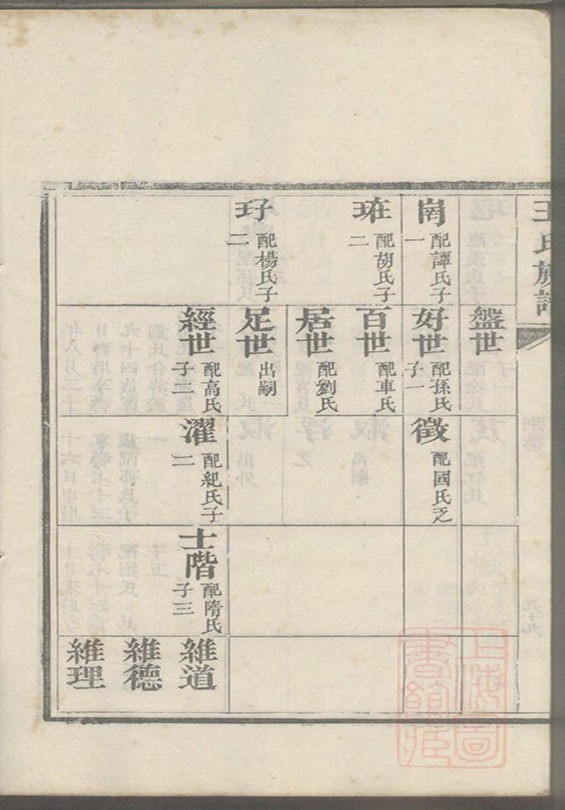 王氏族譜
崗 配譚氏子一
琟 配胡氏子二
玗 配楊氏子二
盤世
好世 配孫氏子一
百世 配車氏
居世 配劉氏
足世 出嗣
經世 配高氏子二
徵 配國氏乏
濯 配紀氏子二
士階 配隋氏子三
維道
維德
維理
上海圖
書館藏